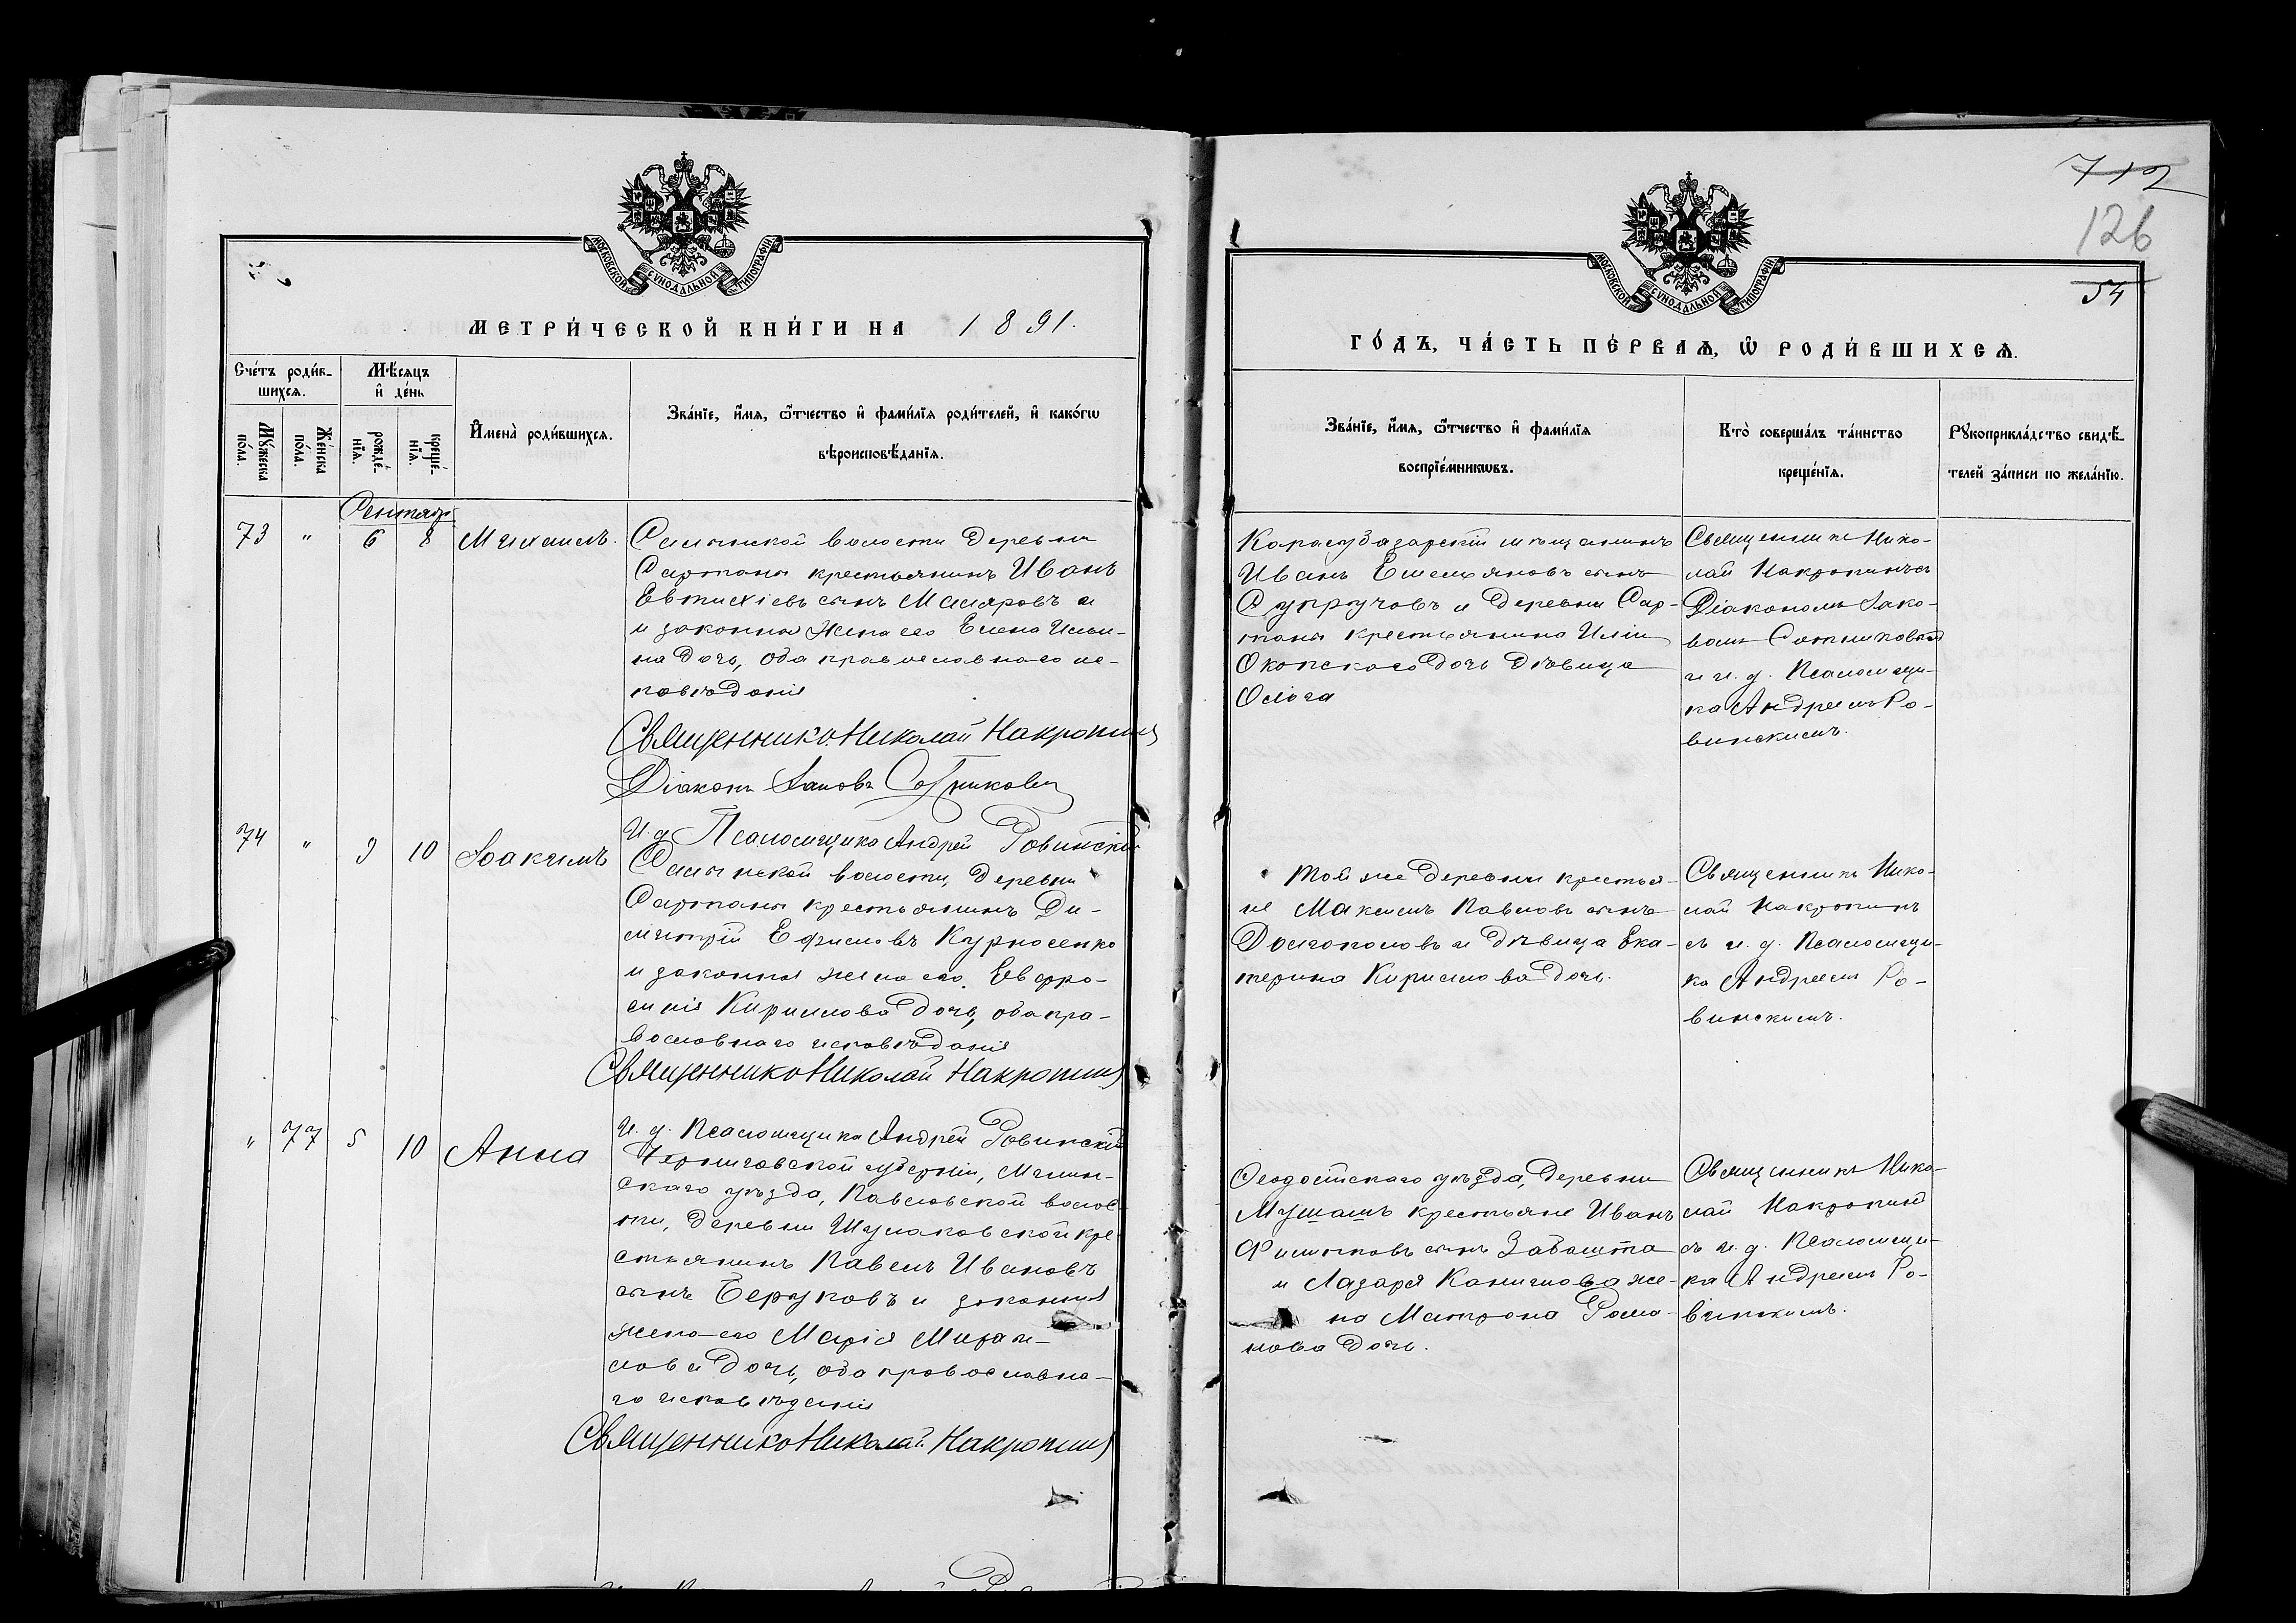 МОСКОВСКОЙ СѴНОДАЛЬНОЙ ТИПОГРАФІИ
МЕТРИ́ЧЕСКОЙ КНИ́ГИ НА 1891.
Сче́тъ роди́в-
шихсѧ.
Мꙋ́жеска
по́ла.
Же́нска
по́ла.
Мѣ́сѧцъ
и҆ де́нь
рожде́-
нїѧ.
креще́-
нїѧ.
И҆мена̀ роди́вшихсѧ.
Зва́нїе, и҆́мѧ, ѻ҆́тчество и҆ фами́лїѧ роди́телей, и҆ како́гѡ
вѣроисповѣ́данїѧ.
Сентябр
73 " 6 8 Михаилъ.
Салынской волости деревни
Сартаны крестьянинъ Иванъ
Евтихіевъ сынъ Маляровъ и
и законная жена его Елена Ильи-
на дочь, оба православнаго ис-
повѣданія
Священникъ Николай Накропинъ
Діаконъ Іаковъ Сотниковъ
И. д. Псаломщика Андрей Ровинскій
74 " 9 10 Іоакимъ
Салынской волости, деревни
Сартаны крестьянинъ Ди-
митрій Ефимовъ Курносенко
и законная жена его Евфро-
синія Кириллова дочь, оба пра-
вославнаго исповѣданія
Священникъ Николай Накропинъ
И. д. Псаломщика Андрей Ровинскій
" 77 5 10 Анна
Черниговской губерніи, Мглин-
скаго уѣзда, Павловской волос-
ти, деревни Шулаковской кре
стьянинъ Павелъ Ивановъ
сынъ Беруковъ и законная
жена его Марія Михаи-
лова дочь, оба православна-
го исповѣданія
Священникъ Николай Накропинъ
712
126
54
МОСКОВСКОЙ СѴНОДАЛЬНОЙ ТИПОГРАФІИ
ГО́ДЪ, ЧА́СТЬ ПЕ́РВАѦ, Ѡ҆ РОДИ́ВШИХСѦ.
Зва́нїе, и҆́мѧ, ѻ҆́тчество и҆ фами́лїѧ
воспрїе́мникѡвъ.
Кто̀ соверша́лъ та́инство
креще́нїѧ.
Рꙋкоприкла́дство свидѣ́-
телей за́писи по жела́нїю.
Карасубазарскій мѣщанинъ
Иванъ Емельяновъ сынъ
Супручовъ и деревни Сар-
таны крестьянина Иліи
Окопскаго дочь дѣвица
Ольга
Священникъ Нико-
лай Накропинъ съ
Діакономъ Іако-
вомъ Сотниковымъ
и и. д. Псаломщи-
ка Андреемъ Ро-
винскимъ.
Той же деревни крестья-
не Максимъ Павловъ сынъ
Долгополовъ и дѣвица Ека-
терина Кириллова дочь.
Священникъ Нико-
лай Накропинъ
съ и. д. Псаломщи-
ка Андреемъ Ро-
винскимъ.
Ѳеодосійскаго уѣзда, деревни
Мушашъ крестьяне Иванъ
Филиповъ сынъ Забашта
и Лазаря Каничнова же-
на Матрона Рома-
нова дочь.
Священникъ Нико-
лай Накропинъ
съ и. д. Псаломщи-
ка Андреемъ Ро-
винскимъ.